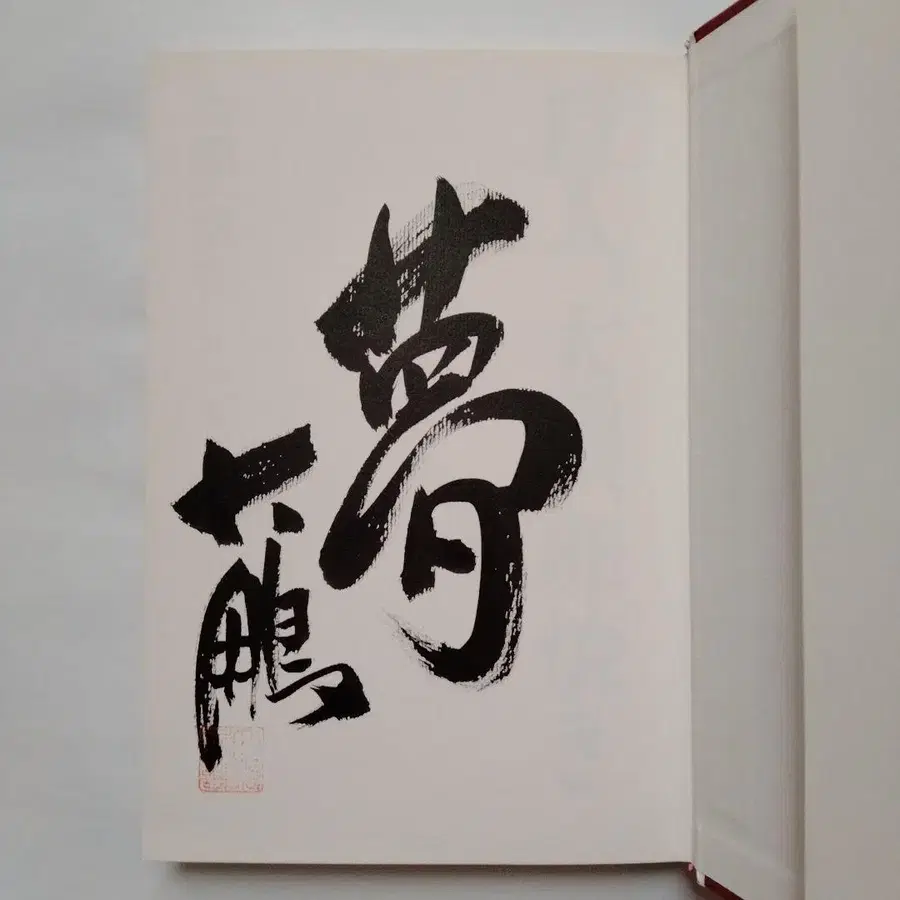 夢
大鵬